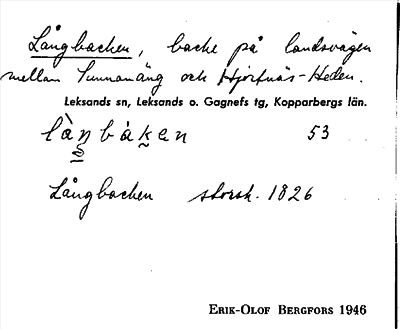 Långbacken, backe på landsvägen
mellan Sunnanäng och Hjortnäs-Heden.
Leksands sn, Leksands o. Gagnefs tg, Kopparbergs län.
làŋbàken 53
Långbacken storsk. 1826
ERIK-OLOF BERGFORS 1946